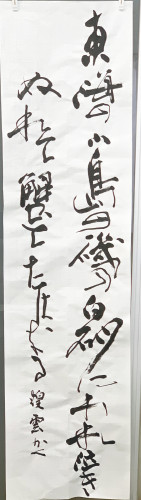 東海の小島の磯の白砂にわれ泣き
ぬれて蟹とたはむる 煌雲かく